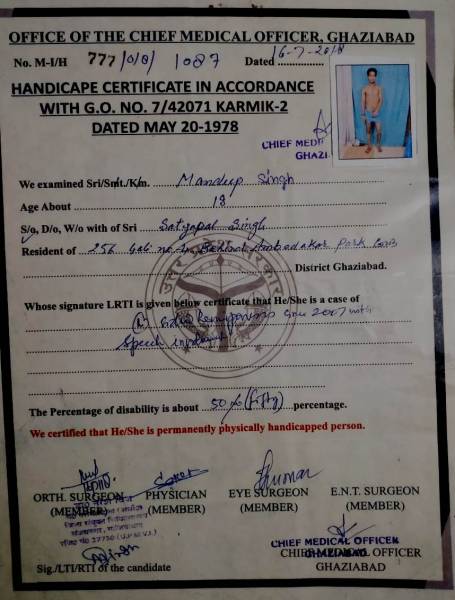 OFFICE OF THE CHIEF MEDICAL OFFICER, GHAZIABAD
No. M-I/H 777/ 1087 Dated 16-7-2018
HANDICAPE CERTIFICATE IN ACCORDANCE
WITH G.O. NO. 7/42071 KARMIK-2
DATED MAY 20-1978
CHIEF MEDI
GHAZI
We examined Sri/Smt./Km. Mandeep Singh
Age About 18
S/o, D/o, W/o with of Sri Satyapal Singh
Resident of 256 Gali no Park
District Ghaziabad.
Whose signature LRTI is given below certificate that He/She is a case of
2007 with
Speech
The Percentage of disability is about 50% (fifty) percentage.
We certified that He/She is permanently physically handicapped person.
ORTH. SURGEON PHYSICIAN EYE SURGEON E.N.T. SURGEON
(MEMBER) (MEMBER) (MEMBER) (MEMBER)
CHIEF MEDICAL OFFICER
GHAZIABAD
CHIEF MEDICAL OFFICER
GHAZIABAD
Sig./LTI/RTI of the candidate